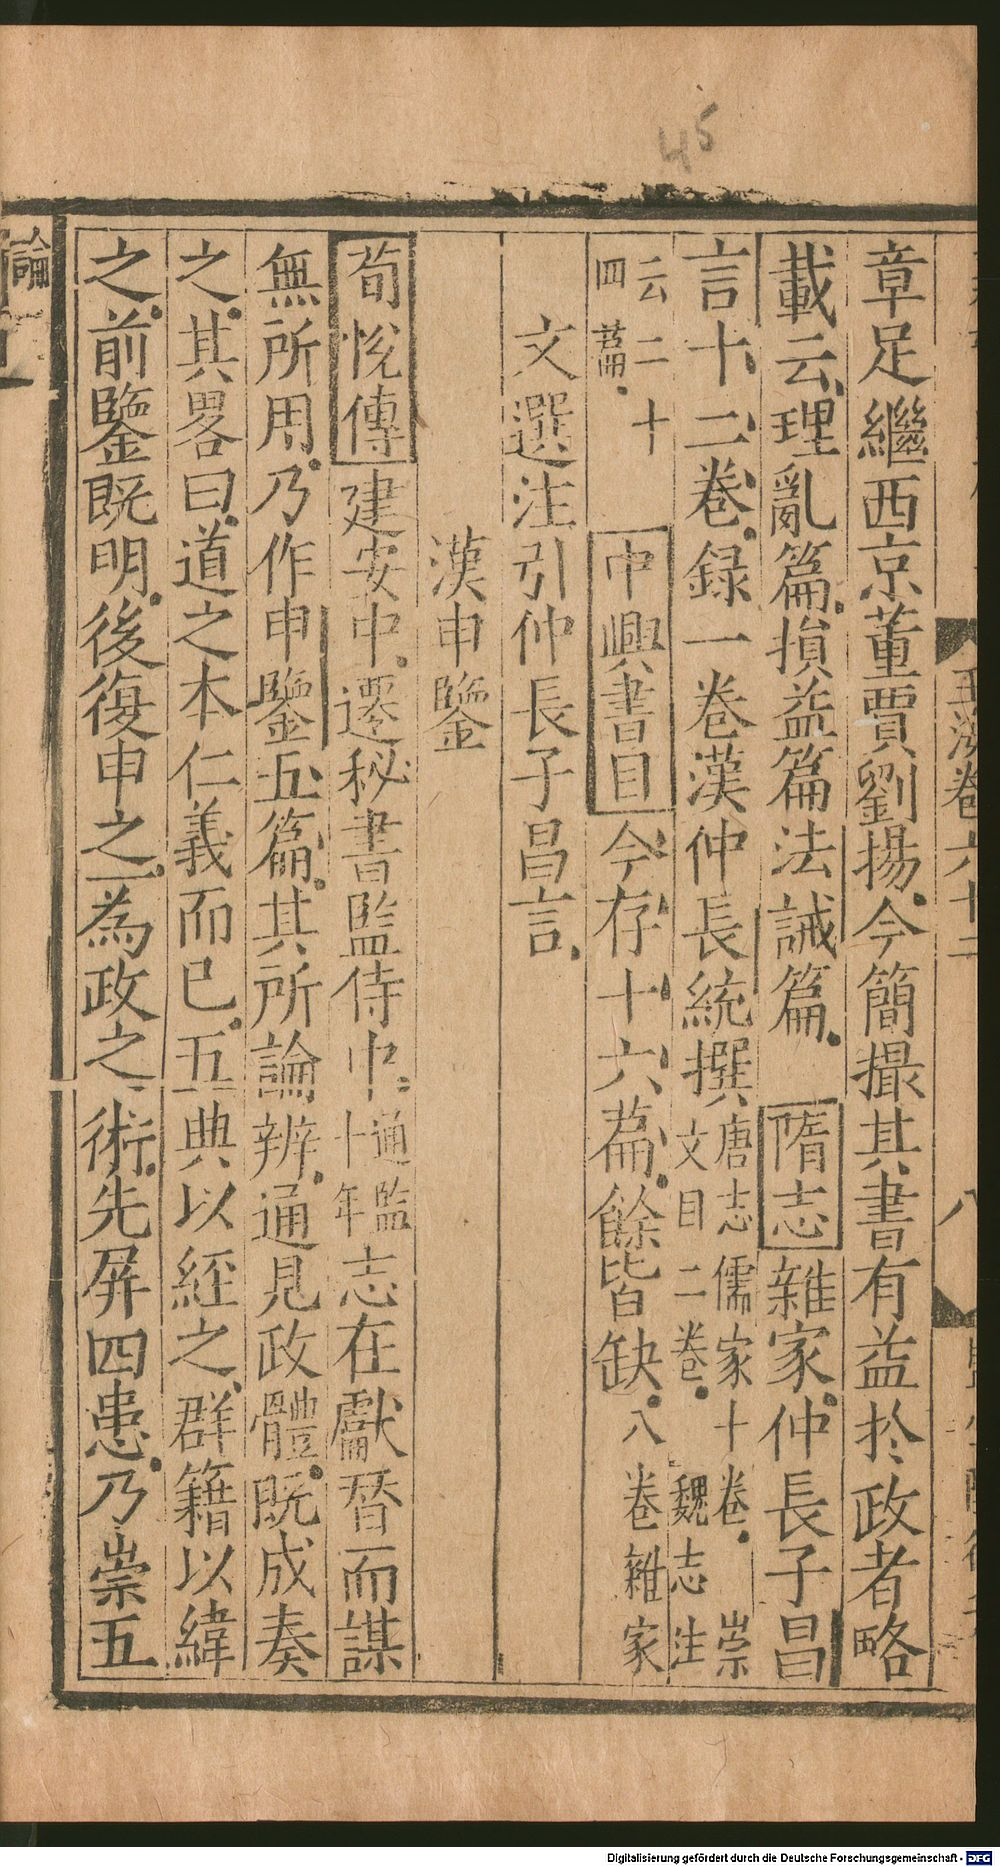 玉海卷六十二
八
章足繼西京董賈劉揚今簡撮其書有益於政者略
載云理亂篇損益篇法誡篇 隋志雜家仲長子昌
言十二卷録一卷漢仲長統撰唐志儒家十卷崇文目二卷 魏志注
云二十四萹 中興書目今存十六萹餘皆缺八卷雜家
文選注引仲長子昌言
漢申鑒
荀恱傳建安中遷秘書監侍中通監十年志在獻替而謀
無所用乃作申鑒五篇其所論辨通見政體既成奏
之其畧曰道之本仁義而已五典以經之群籍以緯
之前鑒既明後復申之為政之術先屏四患乃崇五
論
45
Digitalisierung gefördert durch die Deutsche Forschungsgemeinschaft - DFG